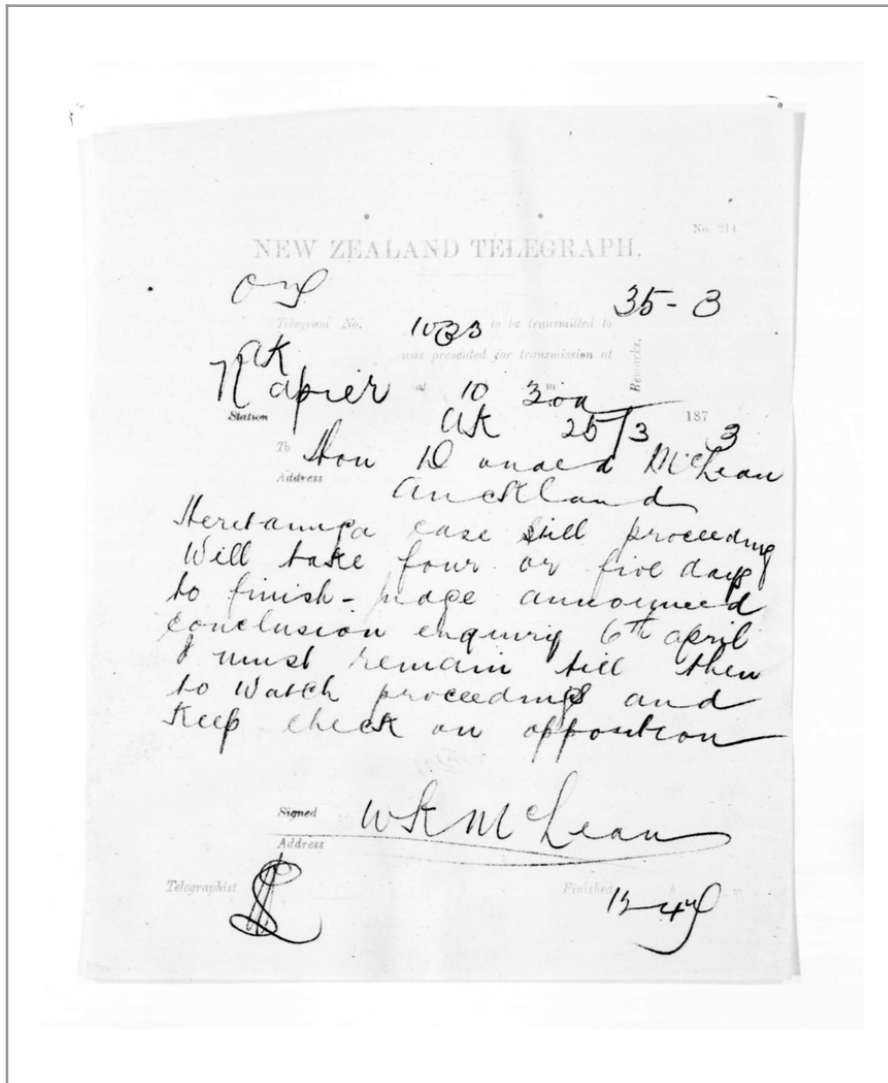 No. 214
NEW ZEALAND TELEGRAPH.
35-3
Telegram No. to be transmitted to
was presented for transmission at
Remarks.
AK
Napier at 10 30a m
Station AK 25/3 187 3
To Hon Donald McLean
Address Auckland
Heretaunga case still proceeding
Will take four or five days
to finish - judge announced
conclusion enquiry 6th april
I must remain till then
to watch proceedings and
Keep check on opposition
Signed WK McLean
Address
Telegraphist Finished h. m.